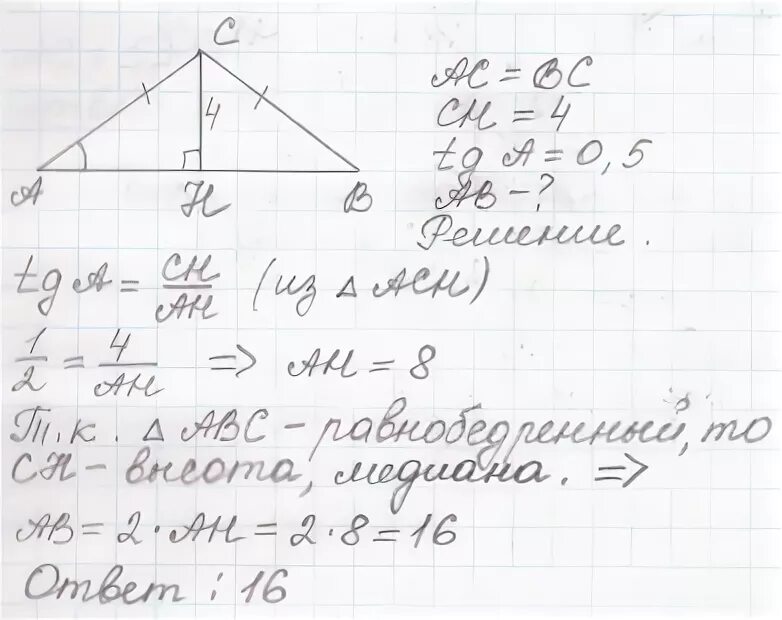 C
4
A
H
B
AC = BC
CH = 4
tg A = 0,5
AB - ?
Решение.
tg A = CH/AH (из △ ACH)
1/2 = 4/AH => AH = 8
Т.к. △ ABC - равнобедренный, то
CH - высота, медиана. =>
AB = 2 · AH = 2 · 8 = 16
Ответ : 16